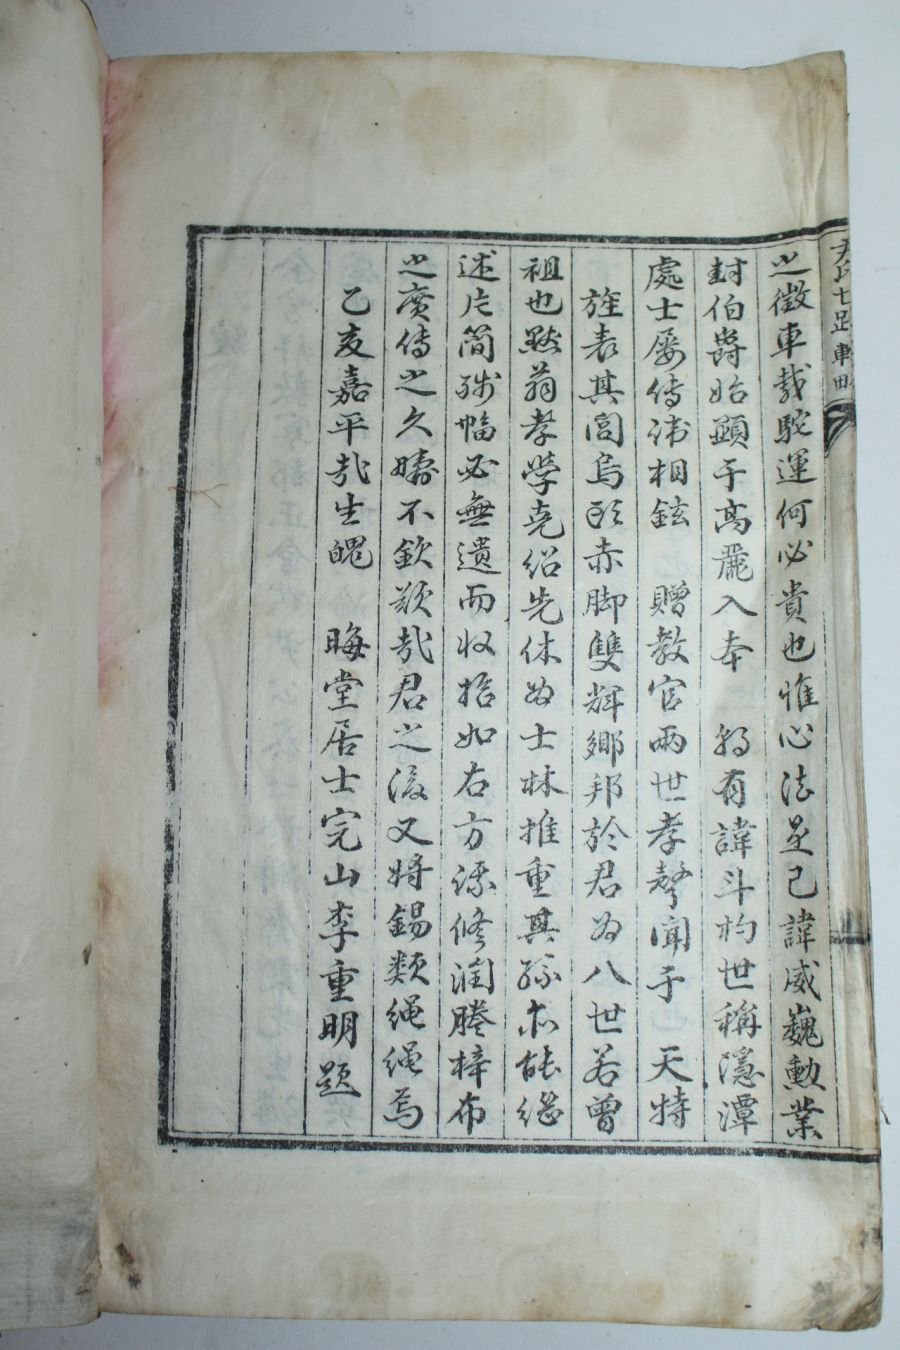 之徵車載駝運何必貴也惟心法足已諱威巍勳業
封伯爵始顯于高麗入本 朝有諱斗杓世稱隱潭
處士屢傳 相鉉 贈教官兩世孝聲聞于 天特
旌表其閭烏頭赤脚雙輝鄉邦於君為八世若曾
祖也默翁孝學克紹先休為士林推重其孫亦能繼
述片簡殘幅必無遺而收拾如右方添修潤謄梓布
之廣傳之久疇不欽歎哉君之後又將錫類繩繩焉
乙亥嘉平哉生魄 晦堂居士完山李重明題